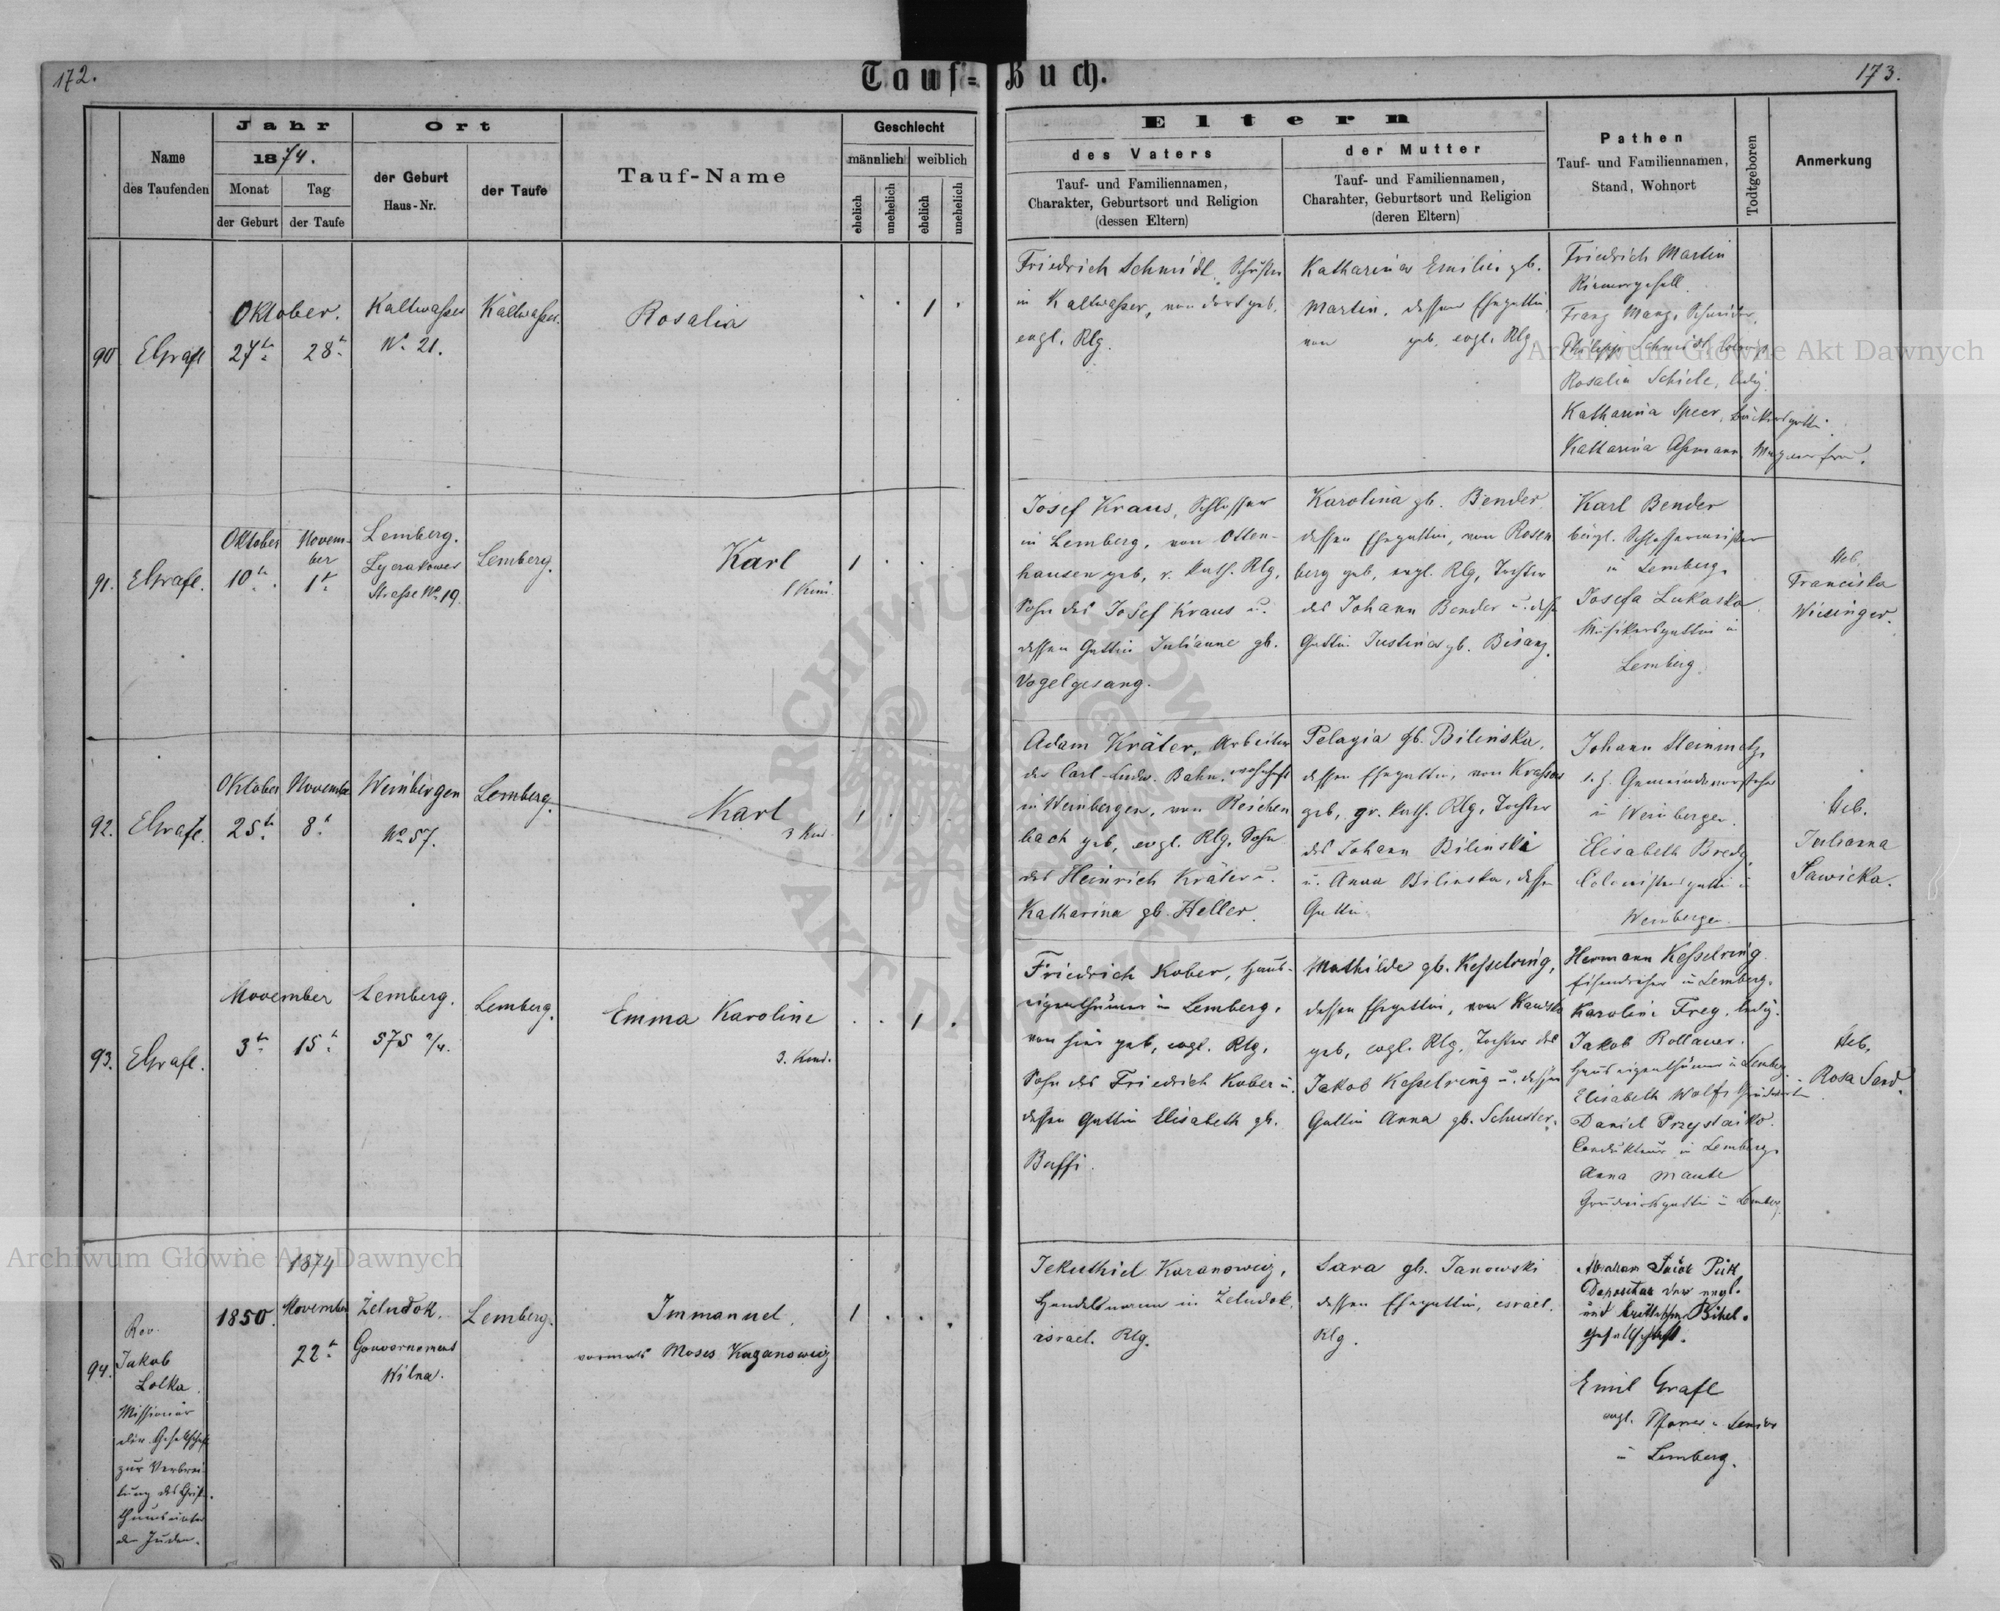 172.
Tauf-Buch.
173.
Name
des Taufenden
Jahr
1874.
Monat
Tag
der Geburt
der Taufe
Ort
der Geburt
Haus-Nr.
der Taufe
Tauf-Name
Geschlecht
männlich
weiblich
ehelich
unehelich
ehelich
unehelich
Eltern
des Vaters
Tauf- und Familiennamen,
Charakter, Geburtsort und Religion
(dessen Eltern)
der Mutter
Tauf- und Familiennamen,
Charahter, Geburtsort und Religion
(deren Eltern)
Pathen
Tauf- und Familiennamen,
Stand, Wohnort
Todtgeboren
Anmerkung
90
EGrafl
Oktober.
27t.
28t.
Kaltwasser
No 21.
Kaltwasser.
Rosalia
1
Friedrich Schmidl, Schuster
in Kaltwasser, von dort geb.
evgl. Rlg.
Katharina Emilie gb.
Martin, dessen Ehegattin,
von geb. evgl. Rlg.
Friedrich Martin
Riemergesell.
Franz Manz, Schneider,
Philipp Schmidl
Rosalia Schiele, ledig.
Katharina Speer, Bäckersgattin.
Katharina Aßmann
91.
EGrafl.
Oktober
10t.
Novem-
ber
1t
Lemberg.
Lyczakower
Straße No 19.
Lemberg.
Karl
1 Kind.
1
Josef Kraus, Schlosser
in Lemberg, von Otten-
hausen geb, r. kath. Rlg,
Sohn des Josef Kraus u.
dessen Gattin Julianne gb.
Vogelgesang.
Karolina gb. Bender
dessen Ehegattin, von Rosen
berg geb, evgl. Rlg, Tochter
des Johann Bender u. dess
Gattin Justina gb. Bisanz.
Karl Bender
bürgl. Schlossermeister
in Lemberg.
Josefa Lukaska
Musikersgattin in
Lemberg.
Heb.
Franciska
Wiesinger.
92.
EGrafl.
Oktober
25t.
November
8t.
Weinbergen
No 57.
Lemberg.
Karl
3 Kind.
1
Adam Kräter, Arbeiter
der Carl-Ludw. Bahn, wohnhaft
in Weinbergen, von Reichen
bach geb, evgl. Rlg, Sohn
des Heinrich Kräter u.
Katharina gb. Heller.
Pelagia gb. Bilińska,
dessen Ehegattin, von
geb, gr. kath. Rlg, Tochter
des Johann Bilinski
u. Anna Bilinska, dessen
Gattin.
Johann Steinmetz,
Gemeindevorsteher
in Weinbergen.
Elisabeth Bredy
Colonistensgattin in
Weinbergen.
Heb.
Julianna
Sawicka.
93.
EGrafl.
November
3t.
15t.
Lemberg.
575 2/4.
Lemberg.
Emma Karoline
3. Kind.
1
Friedrich Kober, Haus-
eigenthümer in Lemberg,
von hier geb, evgl. Rlg,
Sohn des Friedrich Kober u.
dessen Gattin Elisabeth gb.
Baffi.
Mathilde gb. Kesselring,
dessen Ehegattin, von
geb, evgl. Rlg, Tochter des
Jakob Kesselring u. dessen
Gattin Anna gb. Schuster.
Hermann Kesselring
Eisendreher in Lemberg.
Karoline Frey, ledig.
Jakob Rollauer.
Hauseigenthümer in Lemberg.
Elisabeth Wolf
Daniel Przystaiko.
Condukteur in Lemberg.
Anna Mante
in Lemberg.
Heb.
Rosa Sand.
94.
Rev.
Jakob
Lolka.
Missionär
der Gesellschaft
zur Verbrei
tung des Christ.
thums unter
den Juden.
1850.
1874
November
22t.
Żeludok.
Gouvernement
Wilna.
Lemberg.
Immanuel,
vormals Moses Kaganowicz
1
Jekuthiel Kazanowicz,
Handelsmann in Żeludok,
israel. Rlg.
Sara gb. Janowski
dessen Ehegattin, israel.
Rlg.
Abraham Jakob Pick
Depositar der engl.
und brittischen Bibel-
gesellschaft.
Emil Grafl
evgl. Pfarrer u. Senior
in Lemberg.
Archiwum Główne Akt Dawnych
Archiwum Główne Akt Dawnych